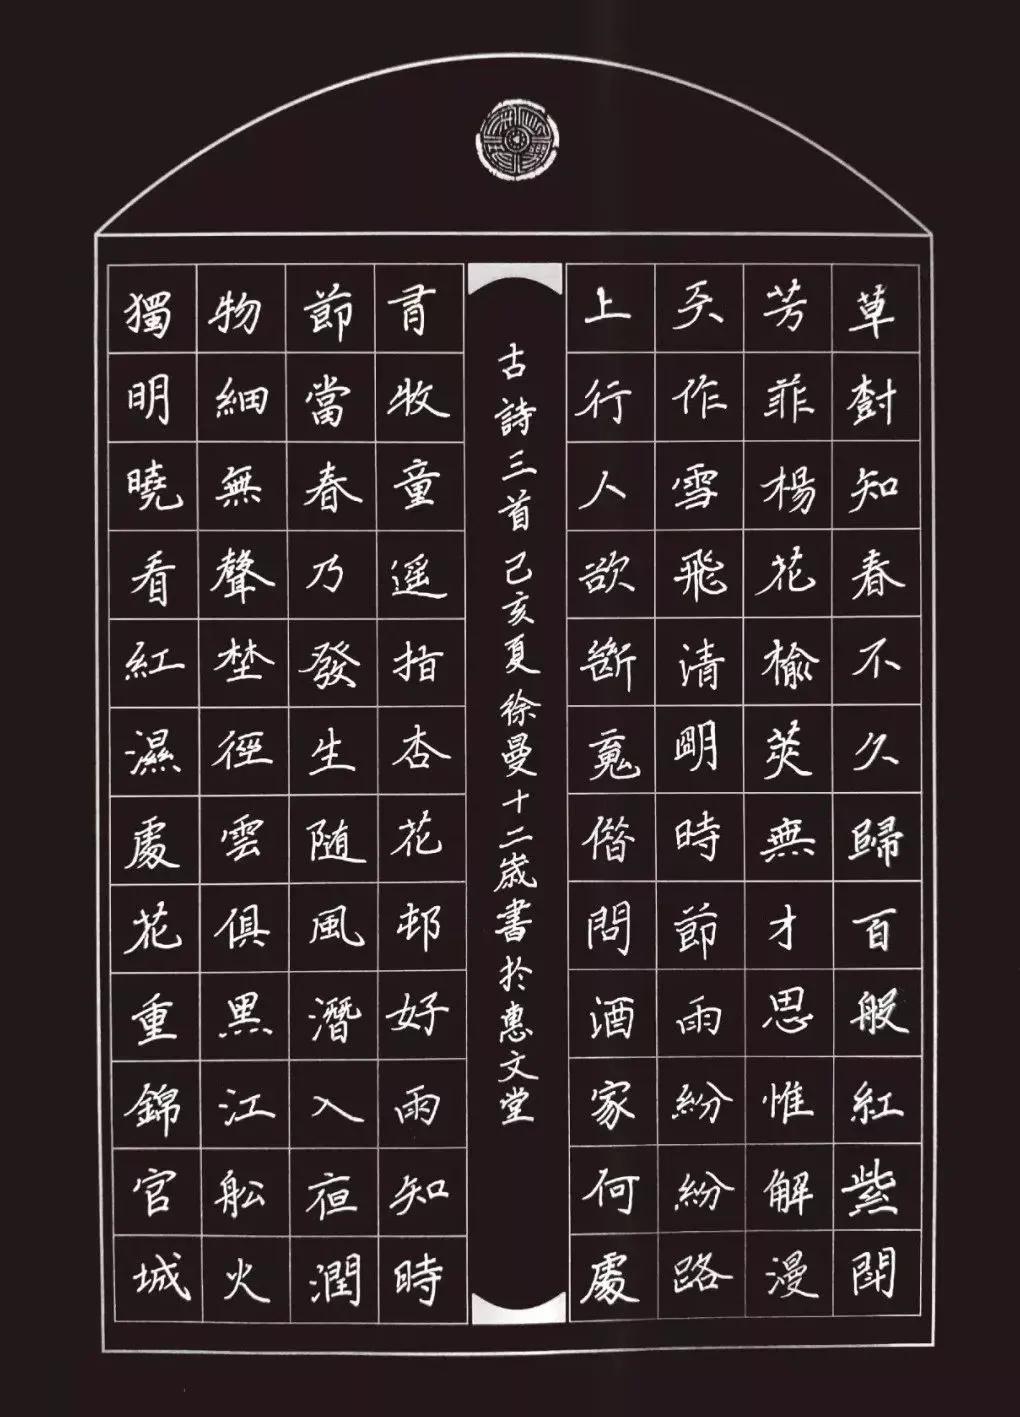 草樹知春不久歸百般紅紫閗
芳菲楊花榆莢無才思惟解漫
天作雪飛清明時節雨紛紛路
上行人欲斷魂借問酒家何處
古詩三首己亥夏徐曼十二歲書於惠文堂
有牧童遥指杏花邨好雨知時
節當春乃發生随風潛入夜潤
物細無聲埜徑雲俱黑江船火
獨明曉看紅濕處花重錦官城